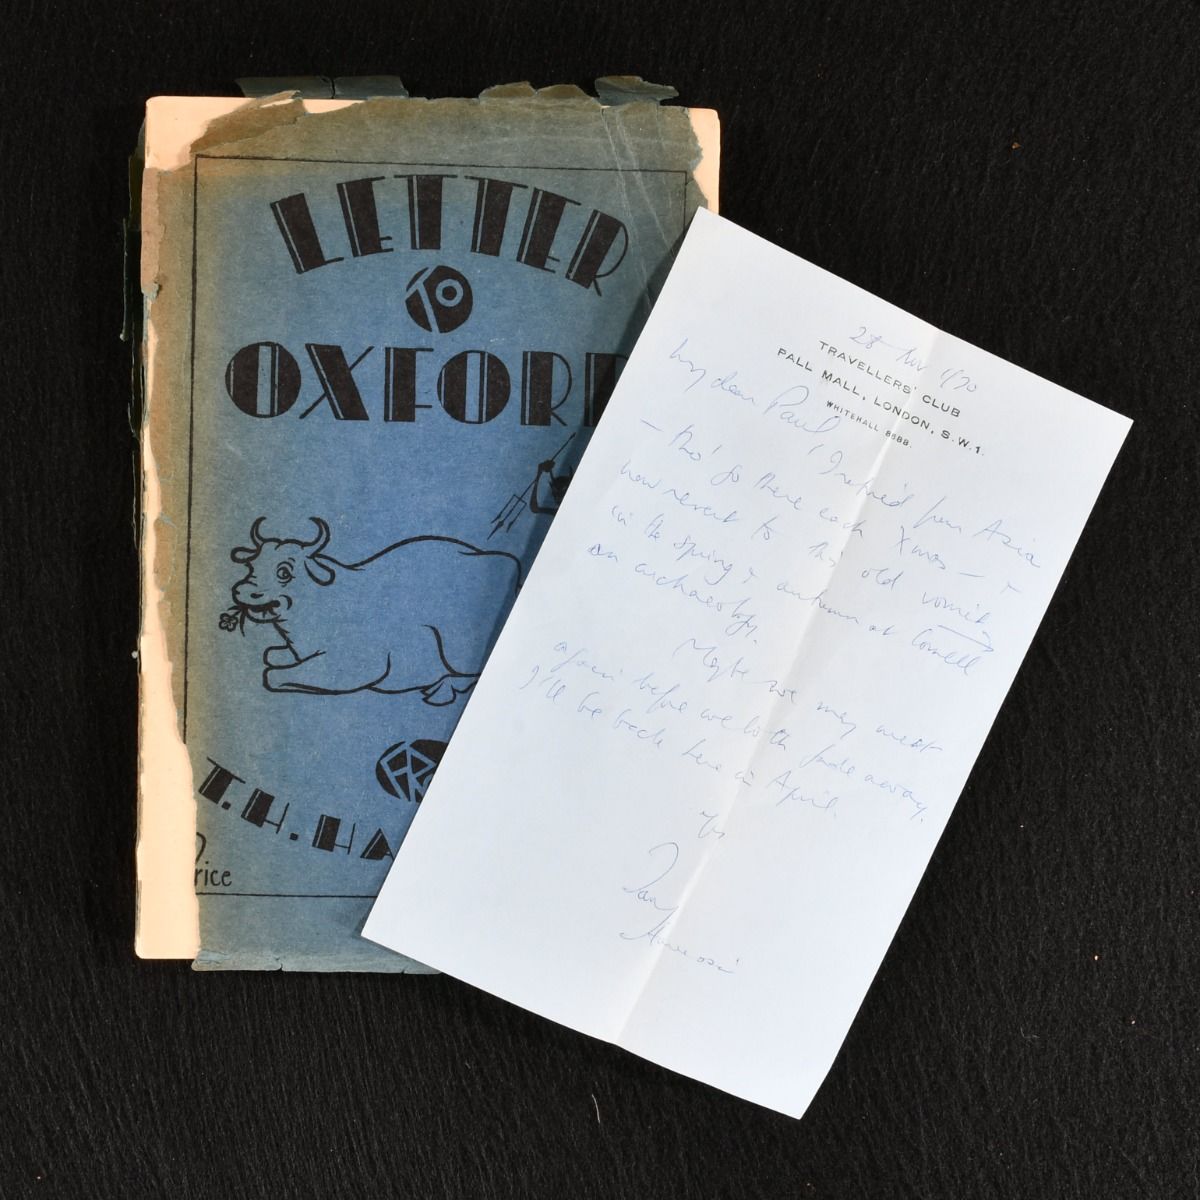 LETTER
TO
OXFORD
T. H. HA
rice
TRAVELLERS' CLUB
PALL MALL, LONDON, S.W.1.
WHITEHALL 8688.
My dear Paul,
I retired from Asia
— tho' go there each Xmas — &
now revert to this old
in the spring & autumn at Cornell
on archaeology.
Maybe we may meet
again before we both fade away.
I'll be back here in April.
Yrs